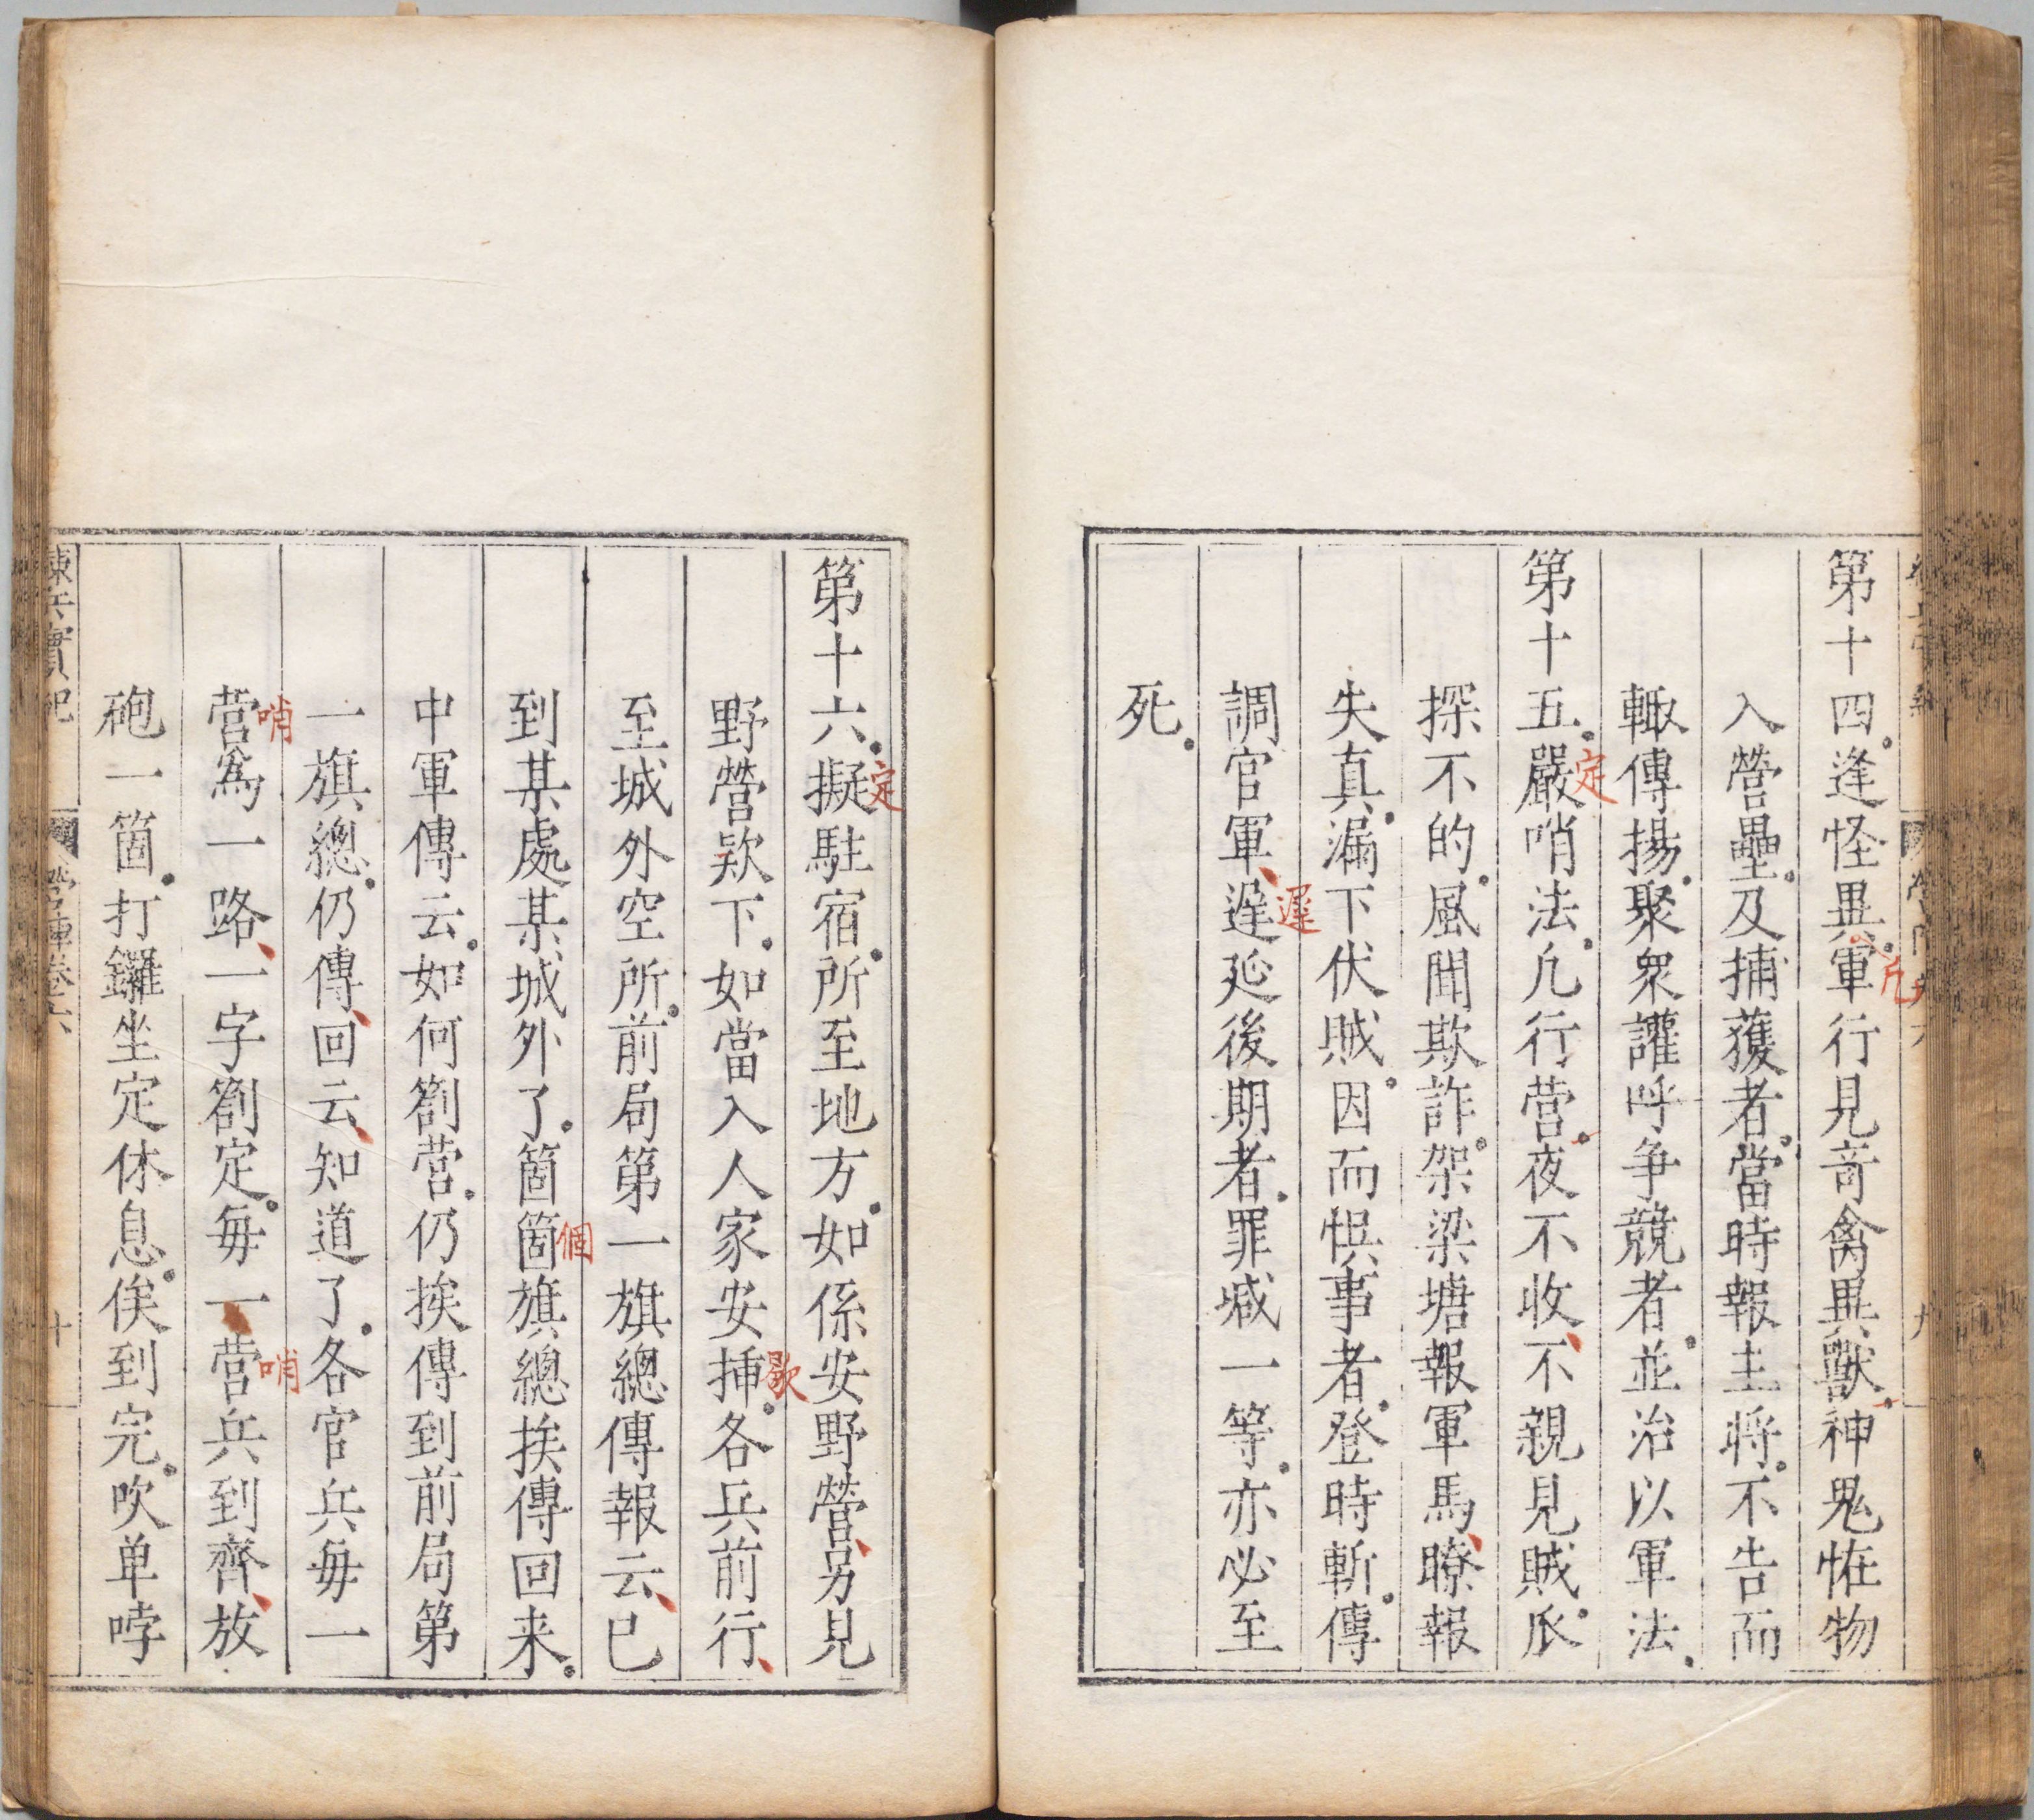 第十四。逢怪異。軍行見竒禽異獸。神鬼恠物
凢
入營壘。及捕獲者。當時報主將。不告而
輙傳揚。聚衆讙呼争競者。並治以軍法。
第十五。嚴哨法。凢行营。夜不收、不親見賊。㕆
定
探不的。風聞欺詐。架梁塘報軍馬、瞭報
失真。漏下伏賊。因而悞事者。登時斬。傳
調官軍、遅延後期者。罪㦸一等。亦必至
遲
死。
第十六。擬駐宿。所至地方。如係安野營、另見
定
野營欵下。如當入人家安揷。各兵前行、
歇
至城外空所。前局第一旗總傳報云、已
到某處某城外了。箇箇旗總挨傳回来。
個
中軍傳云。如何劄营。仍挨傳到前局第
一旗總。仍傳、回云、知道了。各官兵每一
营爲一路、一字劄定。每一营兵到齊、放
哨
哨
砲一箇。打鑼坐定休息。俟到完。吹单哱
練兵實紀
營陣卷六
十